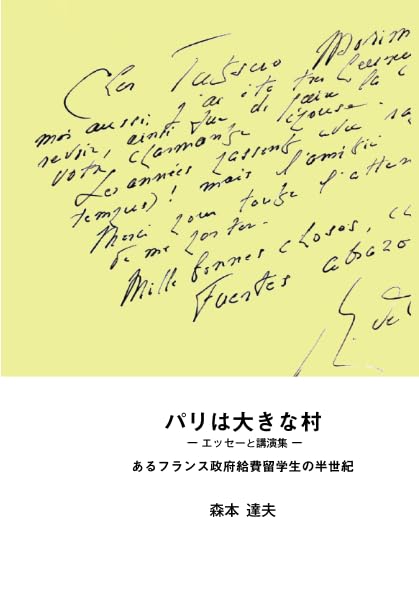 Cher Tatsuo Morim
moi aussi, j'ai été très heureu
revoir, ainsi que de faire la c
votre charmante épouse.
Les années passent avec sa
temps)! mais l'amitié
Merci pour toute l'atten
de me porter.
Mille bonnes choses, c
Fuertes abrazo
パリは大きな村
― エッセーと講演集 ―
あるフランス政府給費留学生の半世紀
森本 達夫